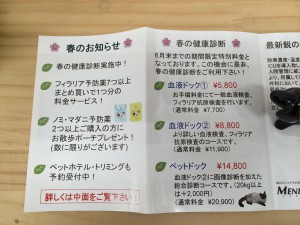 春のお知らせ
春の健康診断実施中！
フィラリア予防薬7つ以上
まとめ買いで1つ分の
料金サービス！
ノミ・マダニ予防薬
2つ以上ご購入の方に
お散歩ポーチプレゼント！
（数に限りがございます）
ペットホテル・トリミングも
予約受付中！
詳しくは中面をご覧下さい！
春の健康診断
6月末までの期間限定特別料金と
なっております。この機会に是非、
春の健康診断をご利用下さい！
血液ドック① ¥5,800
お手頃料金にて一般血液検査、
フィラリア抗原検査を行います。
（通常料金 ¥7,700）
血液ドック② ¥8,800
より詳しい血液検査、フィラリア
抗原検査のコースです。
（通常料金 ¥11,900）
ペットドック ¥14,800
血液ドック2に画像診断を加えた
総合診断コースです。（20kg以上
は＋2,000円）
（通常料金 ¥20,900）
最新鋭の
MEN